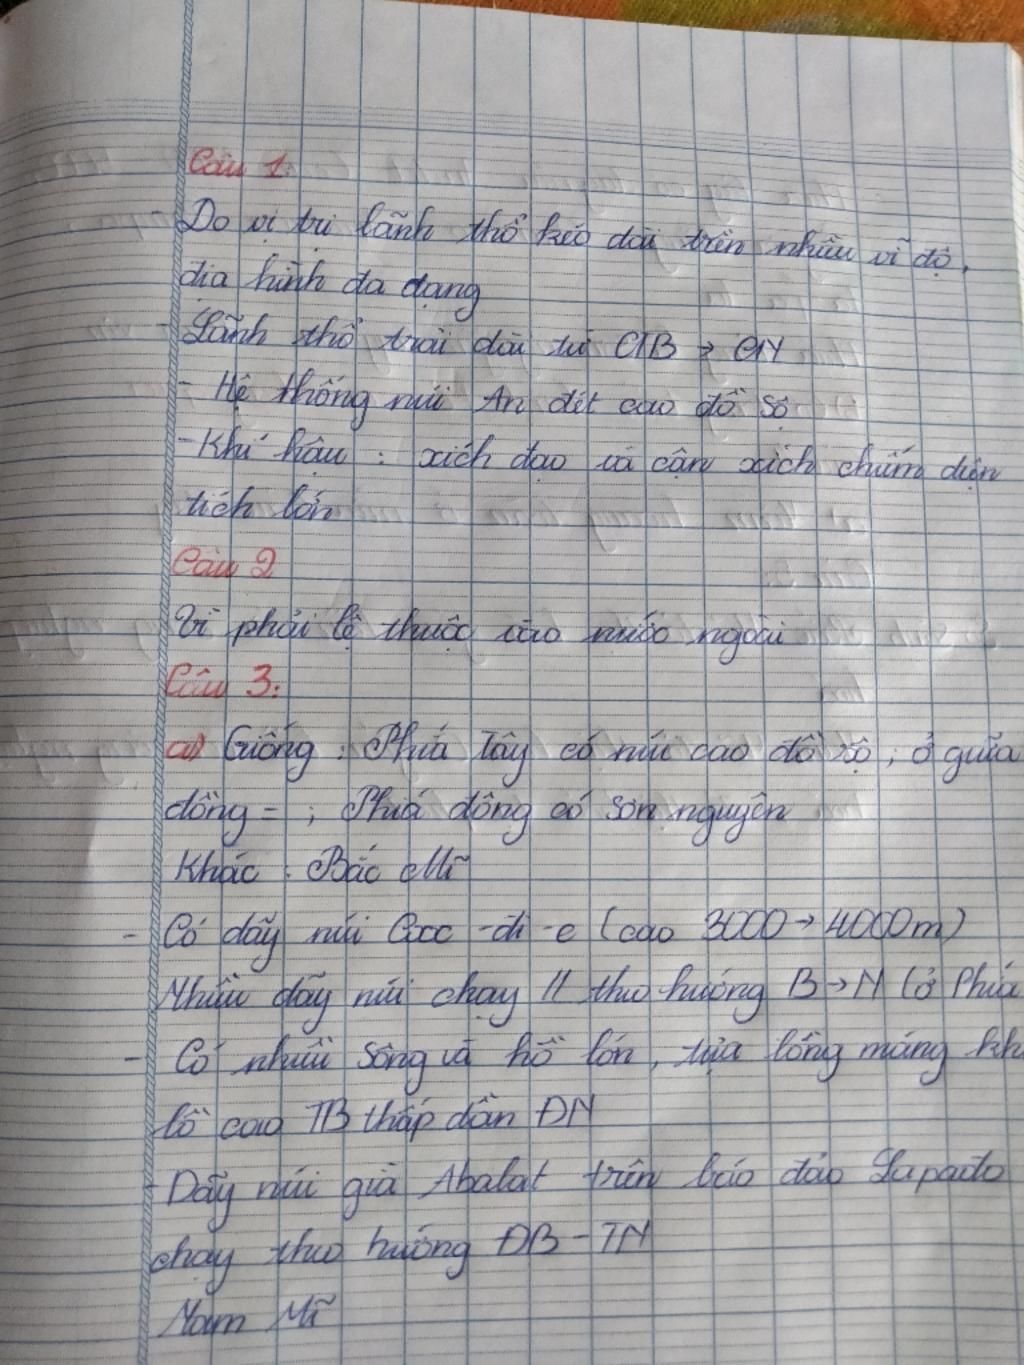 Câu 1
- Do vị trí lãnh thổ kéo dài trên nhiều vĩ độ,
địa hình đa dạng
- Lãnh thổ trải dài từ CTB → CN
- Hệ thống núi An đét cao đồ sộ
- Khí hậu : xích đạo và cận xích chiếm diện
tích lớn
Câu 2
Vì phải lệ thuộc vào nước ngoài
Câu 3:
a) Giống : Phía Tây có núi cao đồ sộ ; ở giữa
đồng = ; Phía đông có sơn nguyên
Khác : Bắc Mĩ
- Có dãy núi Cooc -đi -e (cao 3000 → 4000m)
Nhiều dãy núi chạy // theo hướng B → N (ở Phía
- Có nhiều sông và hồ lớn, tựa lòng máng kh
lồ cao TB thấp dần ĐN
- Dãy núi già Apalat trên bán đảo
chạy theo hướng ĐB - TN
Nam Mĩ